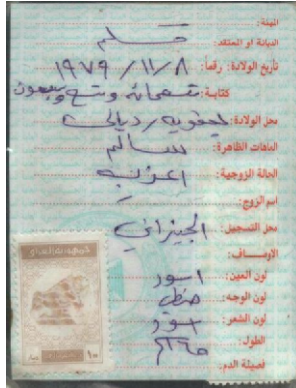 المهنة:
الديانة او المعتقد: مسلم
تأريخ الولادة: رقماً: ١٩٧٩/١١/٨
كتابة: تسعمائة وتسع وسبعون
محل الولادة: بعقوبة / ديالى
العاهات الظاهرة: سالم
الحالة الزوجية: اعزب
اسم الزوج:
محل التسجيل: الجيزاني
الاوصــاف:
لون العين: اسود
لون الوجه: حنطي
لون الشعر: اسود
الطول:
فصيلة الدم: